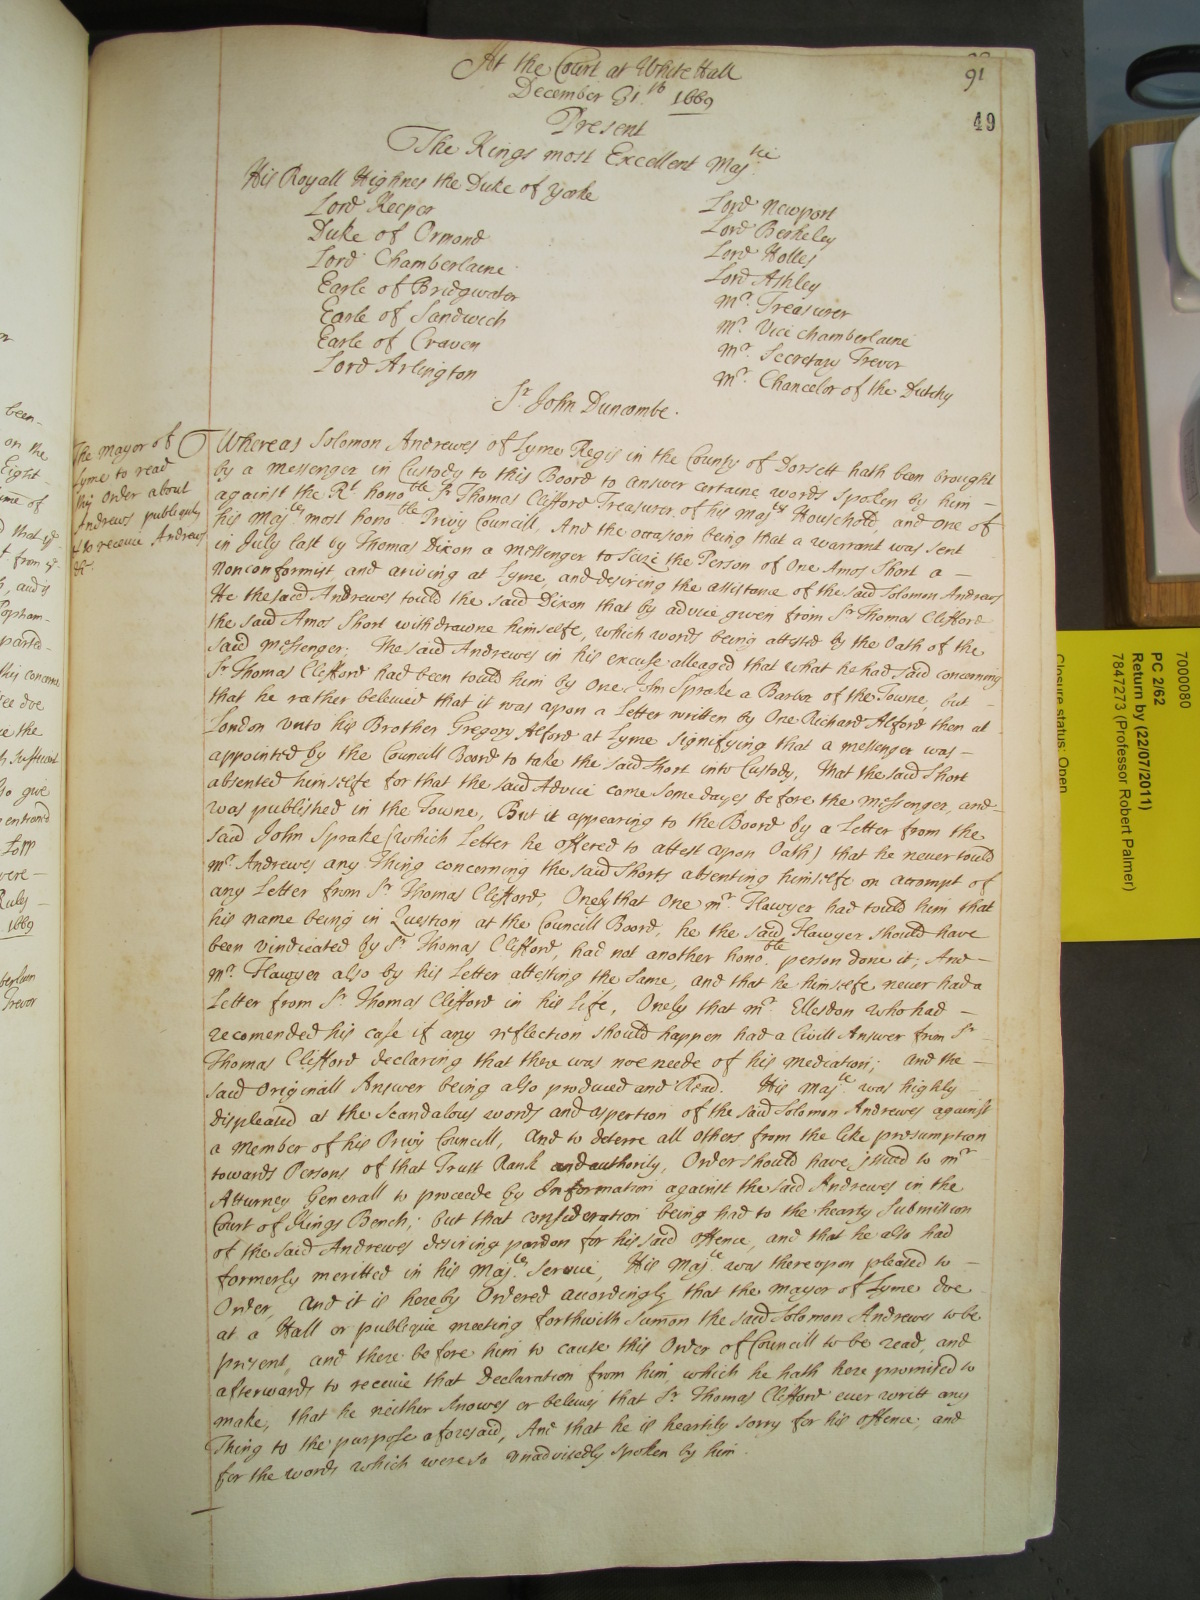 91
49
At the Court at White Hall
December 31th 1669
Present
The Kings most Excellent Majtie
His Royall Highnes the Duke of Yorke
Lord Keeper
Duke of Ormond
Lord Chamberlaine
Earle of Bridgwater
Earle of Sandwich
Earle of Craven
Lord Arlington
Lord Newport
Lord Berkeley
Lord Holles
Lord Ashley
Mr. Treasurer
Mr. Vice chamberlaine
Mr. Secretary Trevor
Mr. Chancelor of the Dutchy
Sr. John Duncombe.
The mayor of
Lyme to read
this Order about
Andrews publiquly
& to receive Andrews
&c.
Whereas Solomon Andrewes of Lyme Regis in the County of Dorsett hath been brought
by a messenger in Custody to this Board to answer certaine words spoken by him —
against the Rt. honoble Sr Thomas Clifford Treasurer of his Majtes Household, and one of
his Majtes most honoble Privy Councill, And the occasion being that a warrant was sent
in July last by Thomas Dixon a messenger to Seize the Person of One Amos Short a —
Nonconformist, and ariving at Lyme, and desiring the assistance of the said Solomon Andrews
He the said Andrewes tould the said Dixon that by advice given from Sr Thomas Clifford
the said Amos Short withdrawne himselfe, which words being attested by the Oath of the
said messenger: The said Andrewes in his excuse alleaged that what he had said concerning
Sr Thomas Clifford had been tould him by One John Sprake a Barber of the Towne, but —
that he rather beleived that it was upon a Letter written by One Richard Alford then at
London unto his Brother Gregory Alford at Lyme signifying that a messenger was —
appointed by the Councill Board to take the said Short into Custody, That the said Short
absented himselfe for that the said Advice come some dayes before the messenger, and
was published in the Towne, But it appearing to the Board by a Letter from the
said John Sprake (which Letter he offered to attest upon Oath) that he never tould
mr. Andrewes any Thing concerning the said Shorts absenting himselfe on accompt of
any Letter from Sr Thomas Clifford, Onely that One mr. Hawyer had tould him that
his name being in Question at the Councill Board, he the said Hawyer should have
been vindicated by Sr Thomas Clifford, had not another honoble person done it; And —
mr. Hawyer also by his Letter attesting the same, and that he himselfe never had a
Letter from Sr Thomas Clifford in his life, Onely that mr. Ellesdon who had —
recomended his case if any reflection should happen had a Civill Answer from Sr
Thomas Clifford declaring that there was noe neede of his mediation; and the —
said Originall Answer being also produced and Read. His Majte was highly
displeased at the scandalous words and aspertion of the said Solomon Andrewes against
a Member of his Privy Councill, and to deterre all others from the like presumption
towards Persons of that Trust Rank and authority, Order should have issued to mr
Atturney Generall to proceede by Information against the said Andrewes in the
Court of Kings Bench; but that consideration being had to the hearty Submission
of the said Andrewes desiring pardon for his said offence, and that he also had
formerly meritted in his Majtes Service, His Majte was thereupon pleased to —
Order, and it is hereby Ordered accordingly that the mayor of Lyme doe
at a Hall or publique meeting forthwith sumon the said Solomon Andrewes to be
present, and there before him to cause this Order of Councill to be read, and
afterwards to receive that Declaration from him, which he hath here promised to
make, that he neither knowes or beleives that Sr. Thomas Clifford ever writt any
Thing to the purpose aforesaid, And that he is heartily sorry for his offence, and
for the words which were so unadvisedly spoken by him.
7000080
PC 2/62
Return by (22/07/2011)
7847273 (Professor Robert Palmer)
Closure status: Open